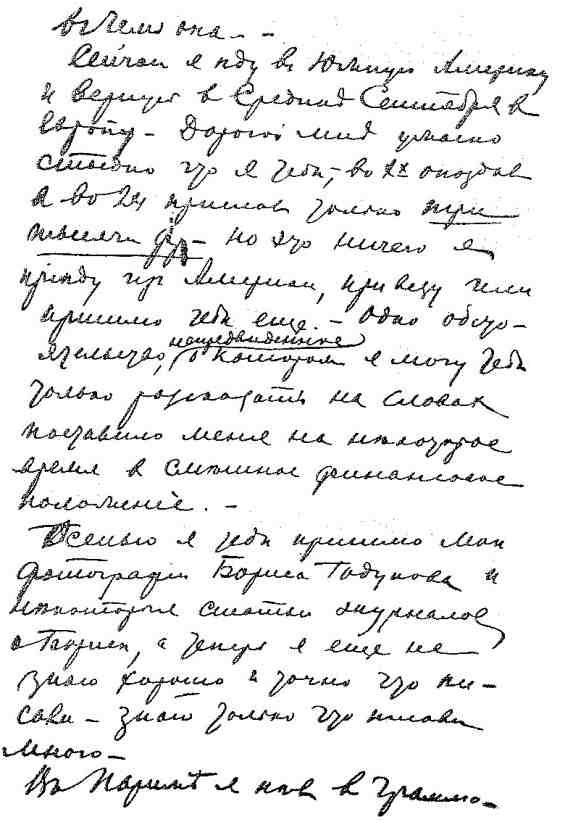 въ чемъ она. –
Сейчас я иду в Южную Америку
и вернусь в Средине Сентября в
Европу – Дорогой мой ужасно
стыдно что я тебе, во 1х опоздав
а во 2х прислав только три
тысячи фр – но это ничего я
приеду из Америки, привезу или
пришлю тебе еще. – Одно обсто-
ятельство, непредвиденное о котором я могу тебе
только рассказать на словах
поставило меня на некоторое
время в смешное финансовое
положение. –
Осенью я тебе пришлю мои
фотографии Бориса Годунова и
некоторые статьи журналов
о Борисе, а теперь я еще не
знаю хорошо и точно что пи-
сали – знаю только что писали
много –
Въ Париже я пел в Граммо-